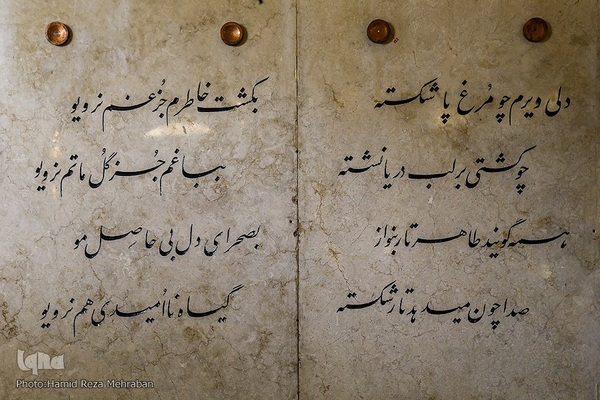 دلی دیرم چو مرغ پا شکسته
چو کشتی بر لب دریا نشسته
همه گویند طاهر تار بنواز
صدا چون میدهد تار شکسته
بکشت خاطرم جُز غم نرویو
بباغم جُز گُل ماتم نرویو
بصحرای دل بی حاصِل مو
گیاه نااُمیدی هم نرویو
iqna
Photo:Hamid Reza Mehraban